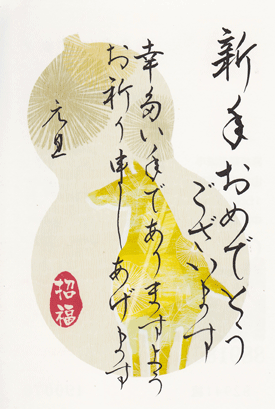 新年おめでとう
ございます
幸多い年でありますよう
お祈り申しあげます
元旦
招福